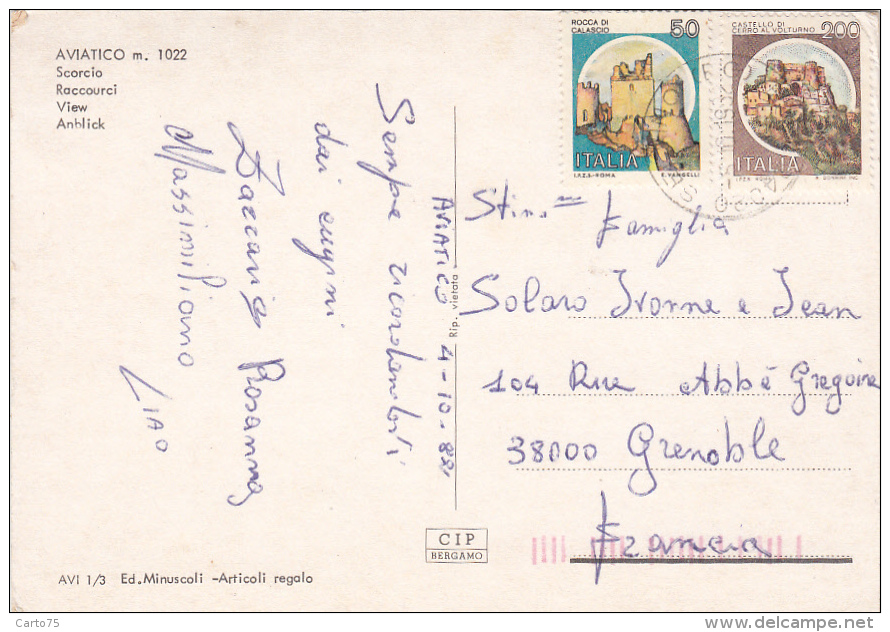 AVIATICO m. 1022
Scorcio
Raccourci
View
Anblick
ROCCA DI
CALASCIO
50
ITALIA
I.P.Z.S.-ROMA
E. VANGELLI
CASTELLO DI
CERRO AL VOLTURNO
200
ITALIA
I.P.Z.S. ROMA
AVIATICO 4-10-88
Sempre ricordandovi
dai cugini
Rosanna
Massimiliano
CIAO
Rip. vietata
Stim.ma
Famiglia
Solaro Ivonne e Jean
104 Rue Abbé Gregoire
38000 Grenoble
Francia
CIP
BERGAMO
AVI 1/3 Ed. Minuscoli -Articoli regalo
Carto75
www.delcampe.net